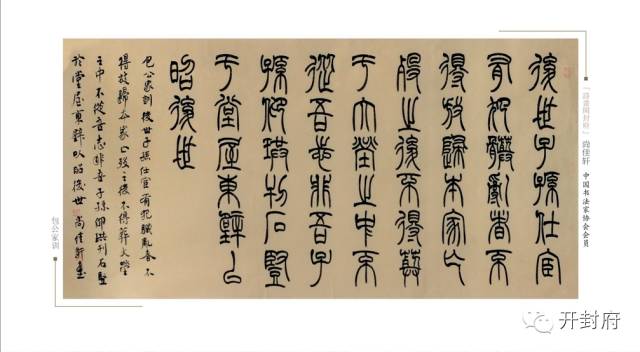 後世子孫仕宦
有犯贓亂者不
得放歸本家亡
歿之後不得葬
于大塋之中不
從吾志非吾子
孫仰珙刊石豎
于堂屋東壁以
昭後世
包公家訓 後世子孫仕宦有犯贓亂者不
得放歸本家亡歿之後不得葬大塋
之中不從吾志非吾子孫仰珙刊石豎
於堂屋東壁以昭後世 尚佳軒書
尚佳轩 中国书法家协会会员
包公家训
开封府